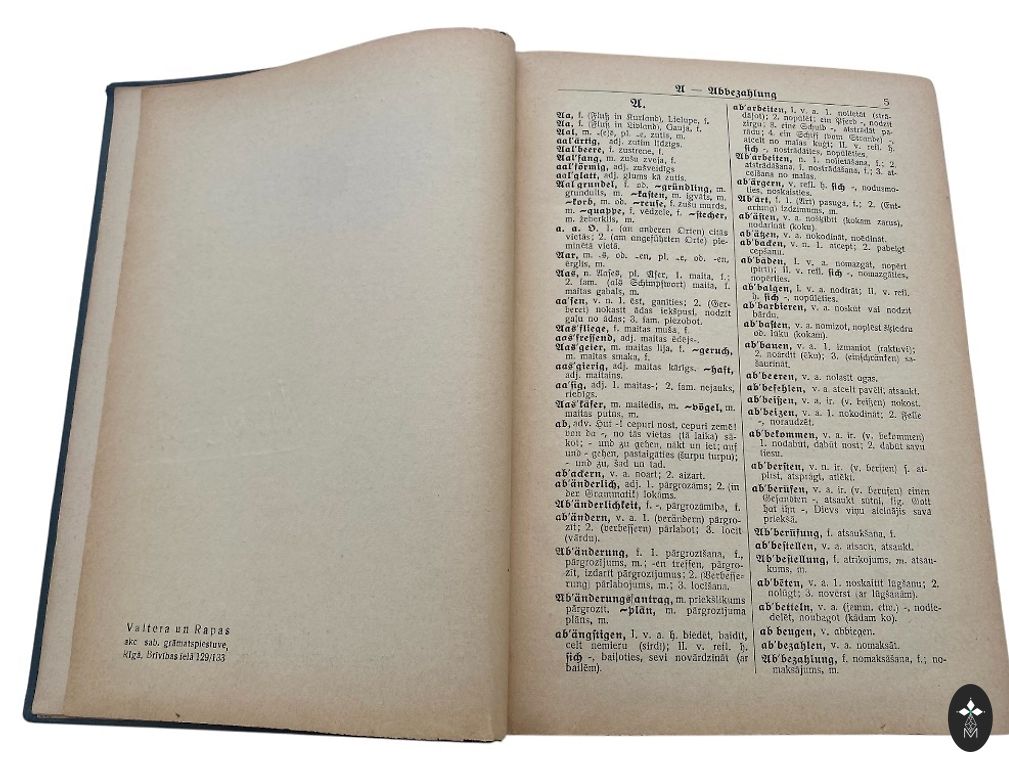 Valtera un Rapas
akc. sab. grāmatspiestuve,
Rīgā, Brīvības ielā 129/133
A — Abbezahlung
5
A.
Aa, f. (Fluß in Kurland), Lielupe, f.
Aa, f. (Fluß in Livland), Gauja, f.
Aal, m. -(e)s, pl. -e, zutis, m.
aal'artig, adj. zutim līdzīgs.
Aal'beere, f. zustrene, f.
Aal'fang, m. zušu zveja, f.
aal'förmig, adj. zušveidīgs
aal'glatt, adj. glums kā zutis.
Aal'grundel, f. od. ~gründling, m.
grundulis, m. ~kasten, m. igvāts, m.
~korb, m. od. ~reuse, f. zušu murds,
m. ~quappe, f. vēdzele, f. ~stecher,
m. žeberklis, m.
a. a. O. 1. (an anderen Orten) citās
vietās; 2. (am angeführten Orte) pie-
minētā vietā.
Aar, m. -s, od. -en, pl. -e, od. -en,
ērglis, m.
Aas, n. Aases, pl. Äser, 1. maita, f.;
2. fam. (als Schimpfwort) maita, f.
maitas gabals, m.
aa'sen, v. n. 1. ēst, ganīties; 2. (Ger-
berei) nokasīt ādas iekšpusi, nodzīt
gaļu no ādas; 3. fam. piezobot.
Aas'fliege, f. maitas muša, f.
aas'fressend, adj. maitas ēdējs-.
Aas'geier, m. maitas lija, f. ~geruch,
m. maitas smaka, f.
aas'gierig, adj. maitas kārīgs. ~haft,
adj. maitains.
aa'sig, adj. 1. maitas-; 2. fam. nejauks,
riebīgs.
Aas'käfer, m. maitēdis, m. ~vögel, m.
maitas putns, m.
ab, adv. Hut -! cepuri nost, cepuri zemē!
von da -, no tās vietas (tā laika) sā-
kot; - und zu gehen, nākt un iet; auf
und - gehen, pastaigāties (šurpu turpu);
- und zu, šad un tad.
ab'ackern, v. a. noart; 2. aizart.
ab'änderlich, adj. 1. pārgrozāms; 2. (in
der Grammatik) lokāms.
Ab'änderlichkeit, f. -, pārgrozāmība, f.
ab'ändern, v. a. 1. (verändern) pārgro-
zīt; 2. (verbessern) pārlabot; 3. locīt
(vārdu).
Ab'änderung, f. 1. pārgrozīšana, f.,
pārgrozījums, m.; -en treffen, pārgro-
zīt, izdarīt pārgrozījumus; 2. (Verbesse-
rung) pārlabojums, m.; 3. locīšana.
Ab'änderungsantrag, m. priekšlikums
pārgrozīt. ~plan, m. pārgrozījuma
plāns, m.
ab'ängstigen, I. v. a. h. biedēt, baidīt,
celt nemieru (sirdī); II. v. refl. h.
sich -, baiļoties, sevi novārdzināt (ar
bailēm).
ab'arbeiten, I. v. a. 1. nolietāt (strā-
dājot); 2. nopūlēt; ein Pferd -, nodzīt
zirgu; 3. eine Schuld -, atstrādāt pa-
rādu; 4. ein Schiff (vom Strande) -,
atcelt no malas kuģi; II. v. refl. h.
sich -, nostrādāties, nopūlēties.
Ab'arbeiten, n. 1. nolietošana, f.; 2.
atstrādāšana, f. nostrādāšana, f.; 3. at-
celšana no malas.
ab'ärgern, v. refl. h. sich -, nodusmo-
ties, noskaisties.
Ab'art, f. 1. (Art) pasuga, f.; 2. (Ent-
artung) izdzimums, m.
ab'ästen, v. a. nošķībīt (kokam zarus),
nodarināt (koku).
ab'ätzen, v. a. nokodināt, noēdināt.
ab'backen, v. n. 1. atcept; 2. pabeigt
cepšanu.
ab'baden, I. v. a. nomazgāt, nopērt
(pirtī); II. v. refl. sich -, nomazgāties,
nopērties.
ab'balgen, I. v. a. nodīrāt; II. v. refl.
h. sich -, nopūlēties.
ab'barbieren, v. a. noskūt vai nodzīt
bārdu.
ab'basten, v. a. nomizot, noplēst šķiedru
od. lūku (kokam).
ab'bauen, v. a. 1. izmantot (raktuvi);
2. noārdīt (ēku); 3. (einschränken) sa-
šaurināt.
ab'beeren, v. a. nolasīt ogas.
ab'befehlen, v. a. atcelt pavēli; atsaukt.
ab'beißen, v. a. ir. (v. beißen) nokost.
ab'beizen, v. a. 1. nokodināt; 2. Felle
-, noraudzēt.
ab'bekommen, v. a. ir. (v. bekommen)
1. nodabūt, dabūt nost; 2. dabūt savu
tiesu.
ab'bersten, v. n. ir. (v. bersten) s. at-
plīst, atsprāgt, atlēkt.
ab'berufen, v. a. ir. (v. berufen) einen
Gesandten -, atsaukt sūtni, fig. Gott
hat ihn -, Dievs viņu aicinājis savā
priekšā.
Ab'berufung, f. atsaukšana, f.
ab'bestellen, v. a. atsacīt, atsaukt.
Ab'bestellung, f. atrīkojums, m. atsau-
kums, m.
ab'beten, v. a. 1. noskaitīt lūgšanu; 2.
nolūgt; 3. novērst (ar lūgšanām).
ab'betteln, v. a. (jemm. etw.) -, nodie-
delēt, noubagot (kādam ko).
ab'beugen, v. a. v. abbiegen.
ab'bezahlen, v. a. nomaksāt.
Ab'bezahlung, f. nomaksāšana, f.; no-
maksājums, m.
M